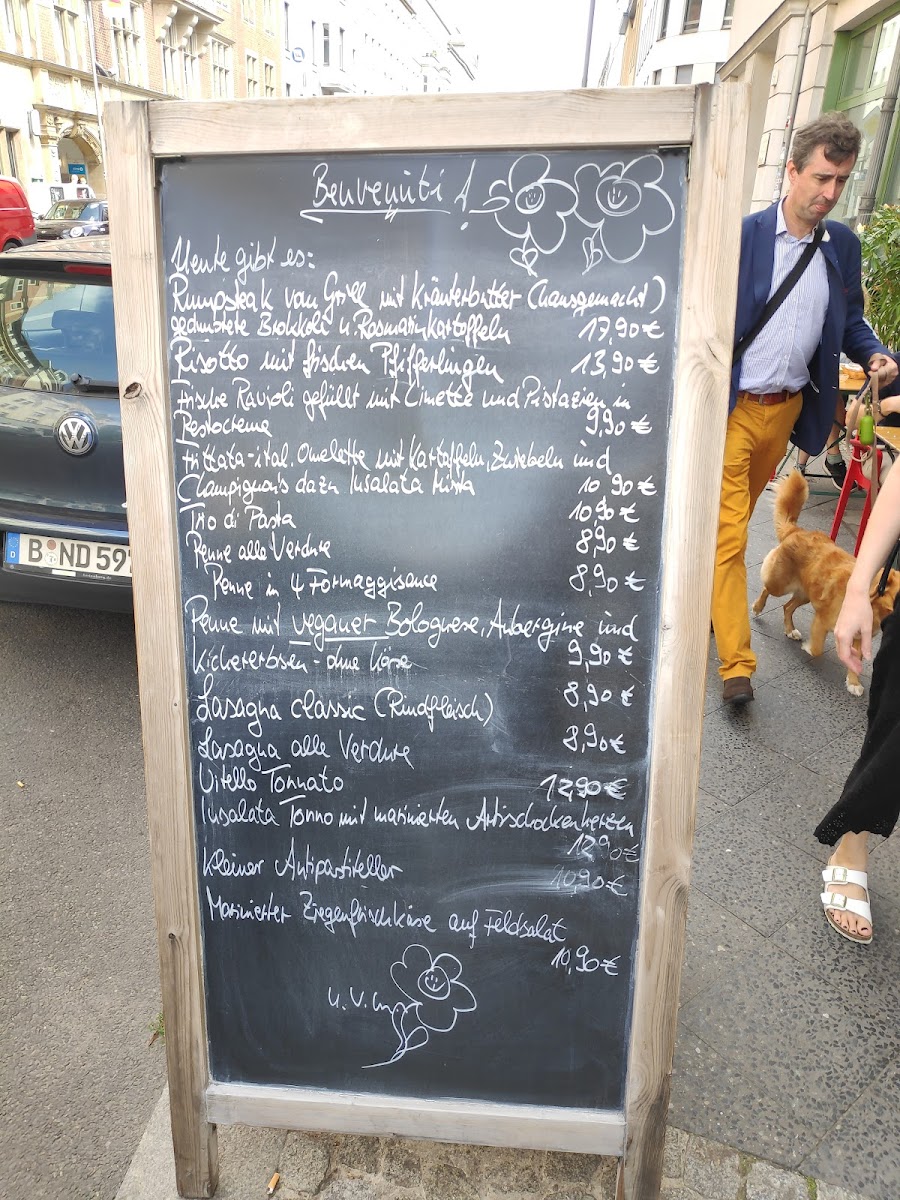 Benvenuti!
Heute gibt es:
Rumpsteak vom Grill mit Kräuterbutter (hausgemacht)
gedünstete Brokkoli u Rosmarinkartoffeln 17,90 €
Risotto mit frischen Pfifferlingen 13,90 €
Frische Ravioli gefüllt mit Limette und Pistazien in
Pestocreme 9,90 €
Frittata-ital. Omelette mit Kartoffeln, Zwiebeln und
Champignon's dazu Insalata Mista 10,90 €
Trio di Pasta 10,90 €
Penne alle Verdure 8,90 €
Penne in 4 Formaggisauce 8,90 €
Penne mit veganer Bolognese, Aubergine und
Kichererbsen - ohne Käse 9,90 €
Lasagna classic (Rindfleisch) 8,90 €
Lasagna alle Verdure 8,90 €
Vitello Tonnato 12,90 €
Insalata Tonno mit marinierten Artischockenherzen
12,90 €
Kleiner Antipastiteller 10,90 €
Marinierter Ziegenfrischkäse auf Feldsalat
10,90 €
u.v.m
B ND 597